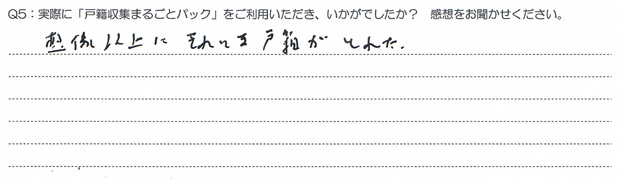 Q5：実際に「戸籍収集まるごとパック」をご利用いただき、いかがでしたか？　感想をお聞かせください。
想像以上に　戸籍が　とれた.